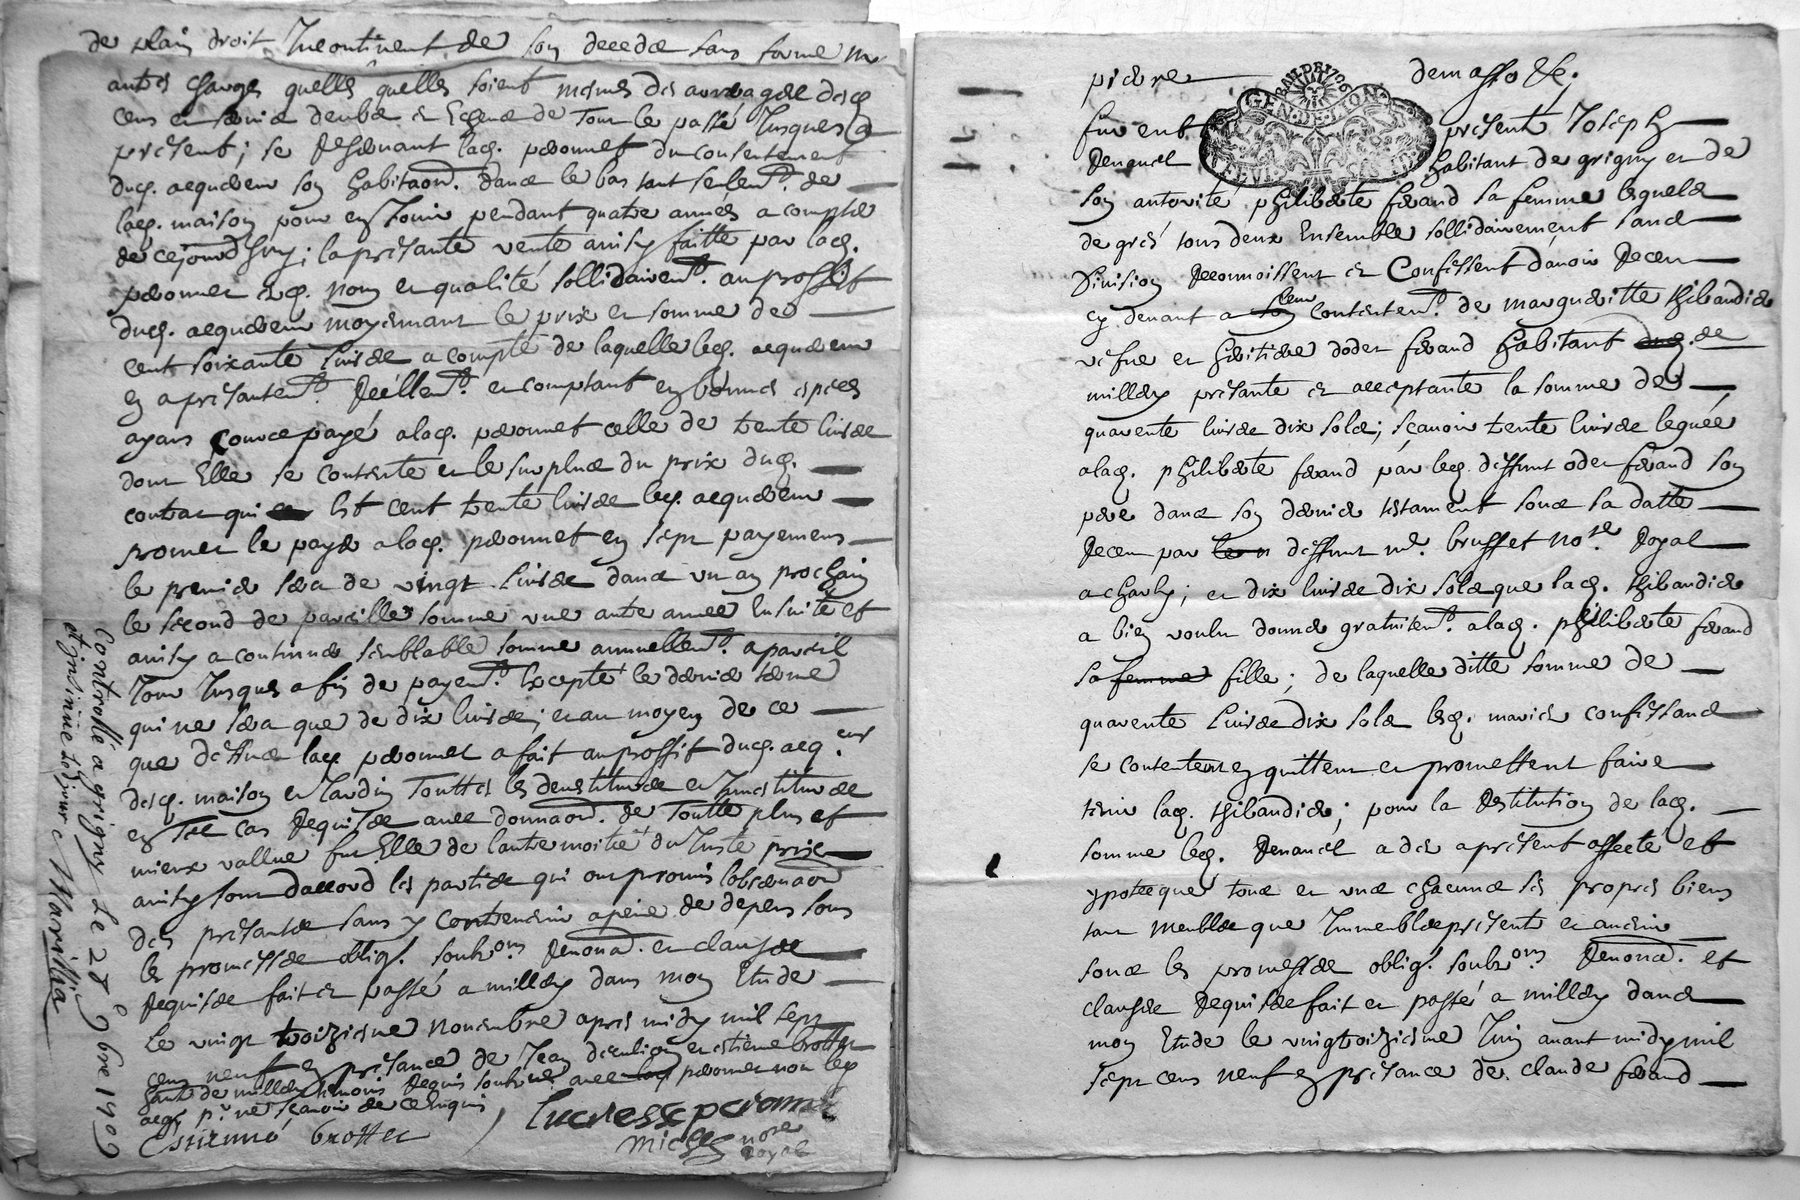 de plain droit Incontinent de son deceds sans forme ni
autres charges quelles quelles soient mesmes des arrerages desd.
cens et servis deubs et Echeus de Tout le passé Jusques a
present; se reservant lad. peronnet du consentement
dud. acquereur son habitaon. dans le bas tant seulemt. de
lad. maison pour en Jouir pendant quatre années a compter
de cejourdhuy; la presante vente ainsy faitte par lad.
peronnet esd. nom et qualité sollidairemt. au proffit
dud. acquereur moyennant le prix et somme de
cent soixante livres a compte de laquelle led. acquereur
en a presantemt. reellemt. et comptant en bonnes especes
payé a lad. peronnet celle de trente livres
dont Elle se contente et le surplus du prix dud.
contrat qui Est cent trente livres led. acquereur
promet le payer a lad. peronnet en sept payemens
le premier sera de vingt livres dans un an prochain
le second de pareille somme une autre annee Ensuite et
ainsy a continuer semblable somme annuellemt. a pareil
Jour Jusques a fin de payemt. Excepté le dernier terme
qui ne sera que de dix livres; et au moyen de ce
que dessus lad. peronnet a fait au proffit dud. acqeur.
desd. maison et Jardin Touttes les devestitures et Investitures
en Tel cas requises avec donnaon. de Toutte plus et
mieux vallue fut Elle de l'autre moitié du Juste prix
ainsy sont d'accord les parties qui ont promis l'observaon
des presantes sans y contrevenir a peine de depens sous
les promesses oblig. soubzons. renona. et clauses
requises fait et passé a millery dans mon Etude
Le vingt troizieme novembre apres midy mil sept
cens neuf en presance de Jean et estienne brottet
de millery temoins requis soubzné avec peronnet non led.
acqr. pr. ne scavoir de ce Enquis
Estienne brottet
lucresse peronnet
notre royal
Controllé a grigny Le 28e 9bre 1709
pierre demasso &c.
GEN. DE LION
furent present Joseph
renanel habitant de grigny et de
son autorité philiberte ferand sa femme lesquels
de gres tous deux Ensemble sollidairement sans
Division reconnoissent et Confessent d'avoir receu
cy devant a leur contentemt. de margueritte thibaudier
vefve et heritiere d'odet ferand habitant de
millery presante et acceptante la somme de
quarente livres dix sols; sçavoir trente livres leguée
a lad. philiberte ferand par led. deffunt odet ferand son
pere dans son dernier testament sous sa datte
receu par deffunt me. brusset nore. royal
a charly; et dix livres dix sols que lad. thibaudier
a bien voulu donner gratuitemt. a lad. philiberte ferand
sa femme fille; de laquelle ditte somme de
quarente livres dix sols lesd. mariés confessans
se contentent en quittent et promettent faire
tenir lad. thibaudier; pour la restitution de lad.
somme led. renanel a des a present affecté et
ypotecque tous et uns chacuns ses propres biens
tant meubles que Immeubles presents et avenir
sous les promesses oblig. soubzons. renona. et
clauses requises fait et passé a millery dans
mon Etude le vingtroizieme Juin avant midy mil
sept cens neuf en presance de claude ferand